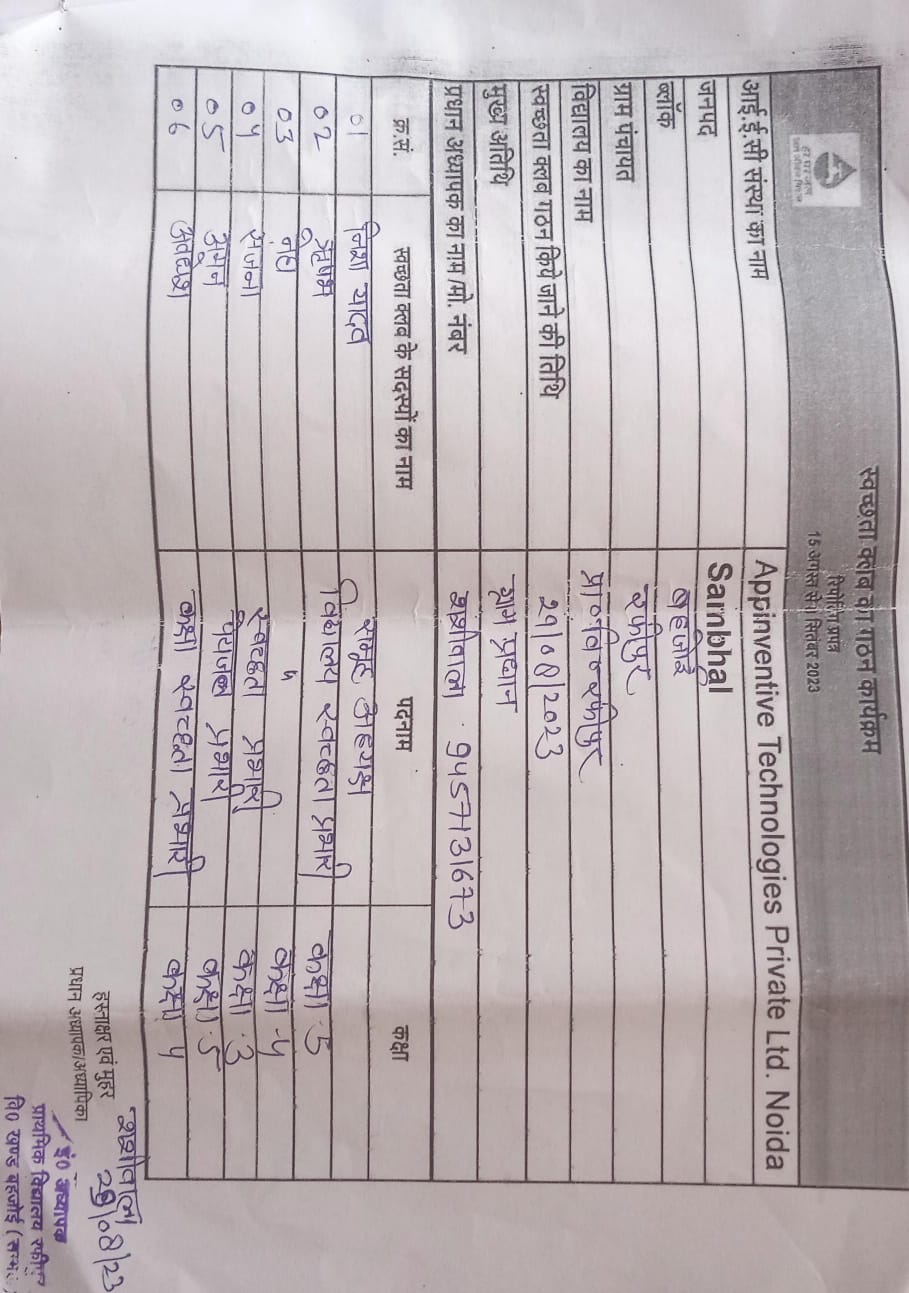 स्वच्छता क्लब का गठन कार्यक्रम
रिपोर्टिंग प्रपत्र
15 अगस्त से 1 सितंबर 2023
हर घर जल
आई.ई.सी संस्था का नाम Appinventive Technologies Private Ltd. Noida
जनपद Sambhal
ब्लॉक बहजोई
ग्राम पंचायत रफीपुर
विद्यालय का नाम प्रा० वि० रफीपुर
स्वच्छता क्लब गठन किये जाने की तिथि 29/08/2023
मुख्य अतिथि ग्राम प्रधान
प्रधान अध्यापक का नाम/मो. नंबर शशीबाला 9457131673
क्र.सं. स्वच्छता क्लब के सदस्यों का नाम पदनाम कक्षा
01 निशा यादव समूह अध्यक्ष कक्षा-5
02 ऋषभ विद्यालय स्वच्छता प्रभारी
03 " कक्षा-4
04 संजना स्वच्छता प्रभारी कक्षा-3
05 अमन पेयजल प्रभारी कक्षा-5
06 कक्षा स्वच्छता प्रभारी कक्षा 4
शशीबाला
29/08/23
हस्ताक्षर एवं मुहर
प्रधान अध्यापक/अध्यापिका
इं० अध्यापक
प्राथमिक विद्यालय
वि० खण्ड बहजोई